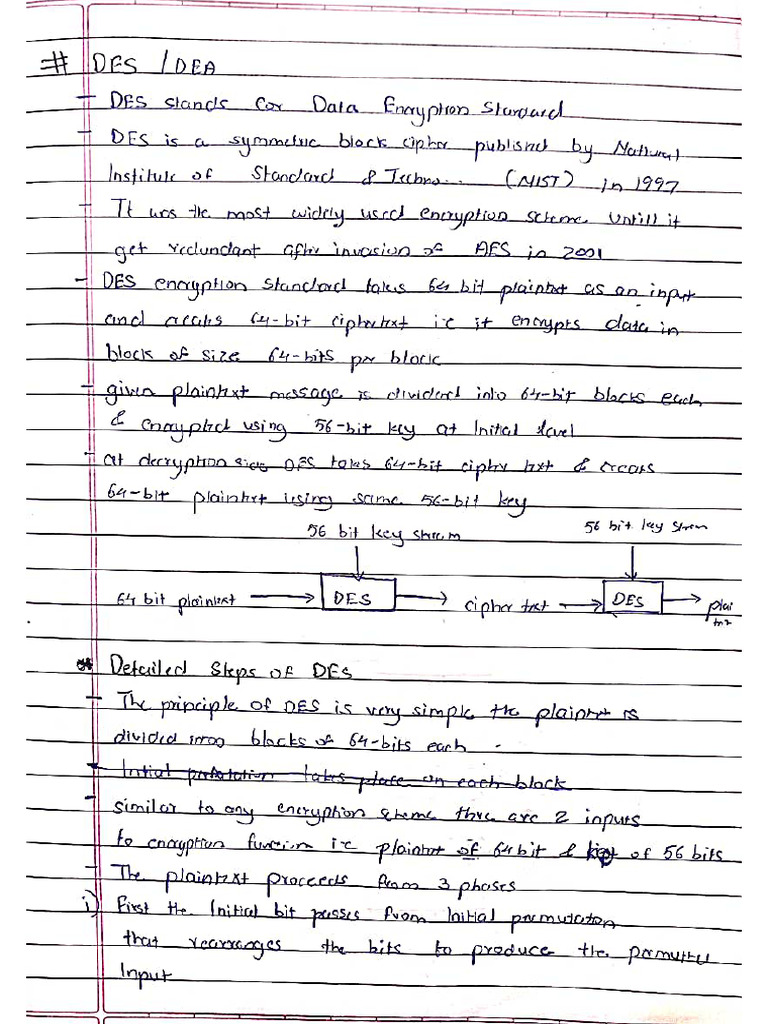 # DES / DEA
- DES stands for Data Encryption Standard
- DES is a symmetric block cipher published by National
Institute of Standard & Techno... (NIST) in 1997
- It was the most widely used encryption scheme untill it
get redundant after invasion of AES in 2001
- DES encryption standard takes 64 bit plaintext as an input
and creates 64-bit ciphertext i.e it encrypts data in
block of size 64-bits per block
- given plaintext message is divided into 64-bit blocks each
& encrypted using 56-bit key at Initial level
- at decryption side DES takes 64-bit cipher text & creats
64-bit plaintext using same 56-bit key
56 bit key stream 56 bit key stream
64 bit plaintext → DES → cipher text → DES → plai
txt
* Detailed Steps of DES
- The principle of DES is very simple the plaintext is
divided into blocks of 64-bits each.
- Initial takes place on each block
- similar to any encryption scheme there are 2 inputs
to encryption function i.e plaintext of 64 bit & key of 56 bits
- The plaintext proceeds from 3 phases
i) First the Initial bit passes from Initial permutation
that rearranges the bits to produce the permutted
Input